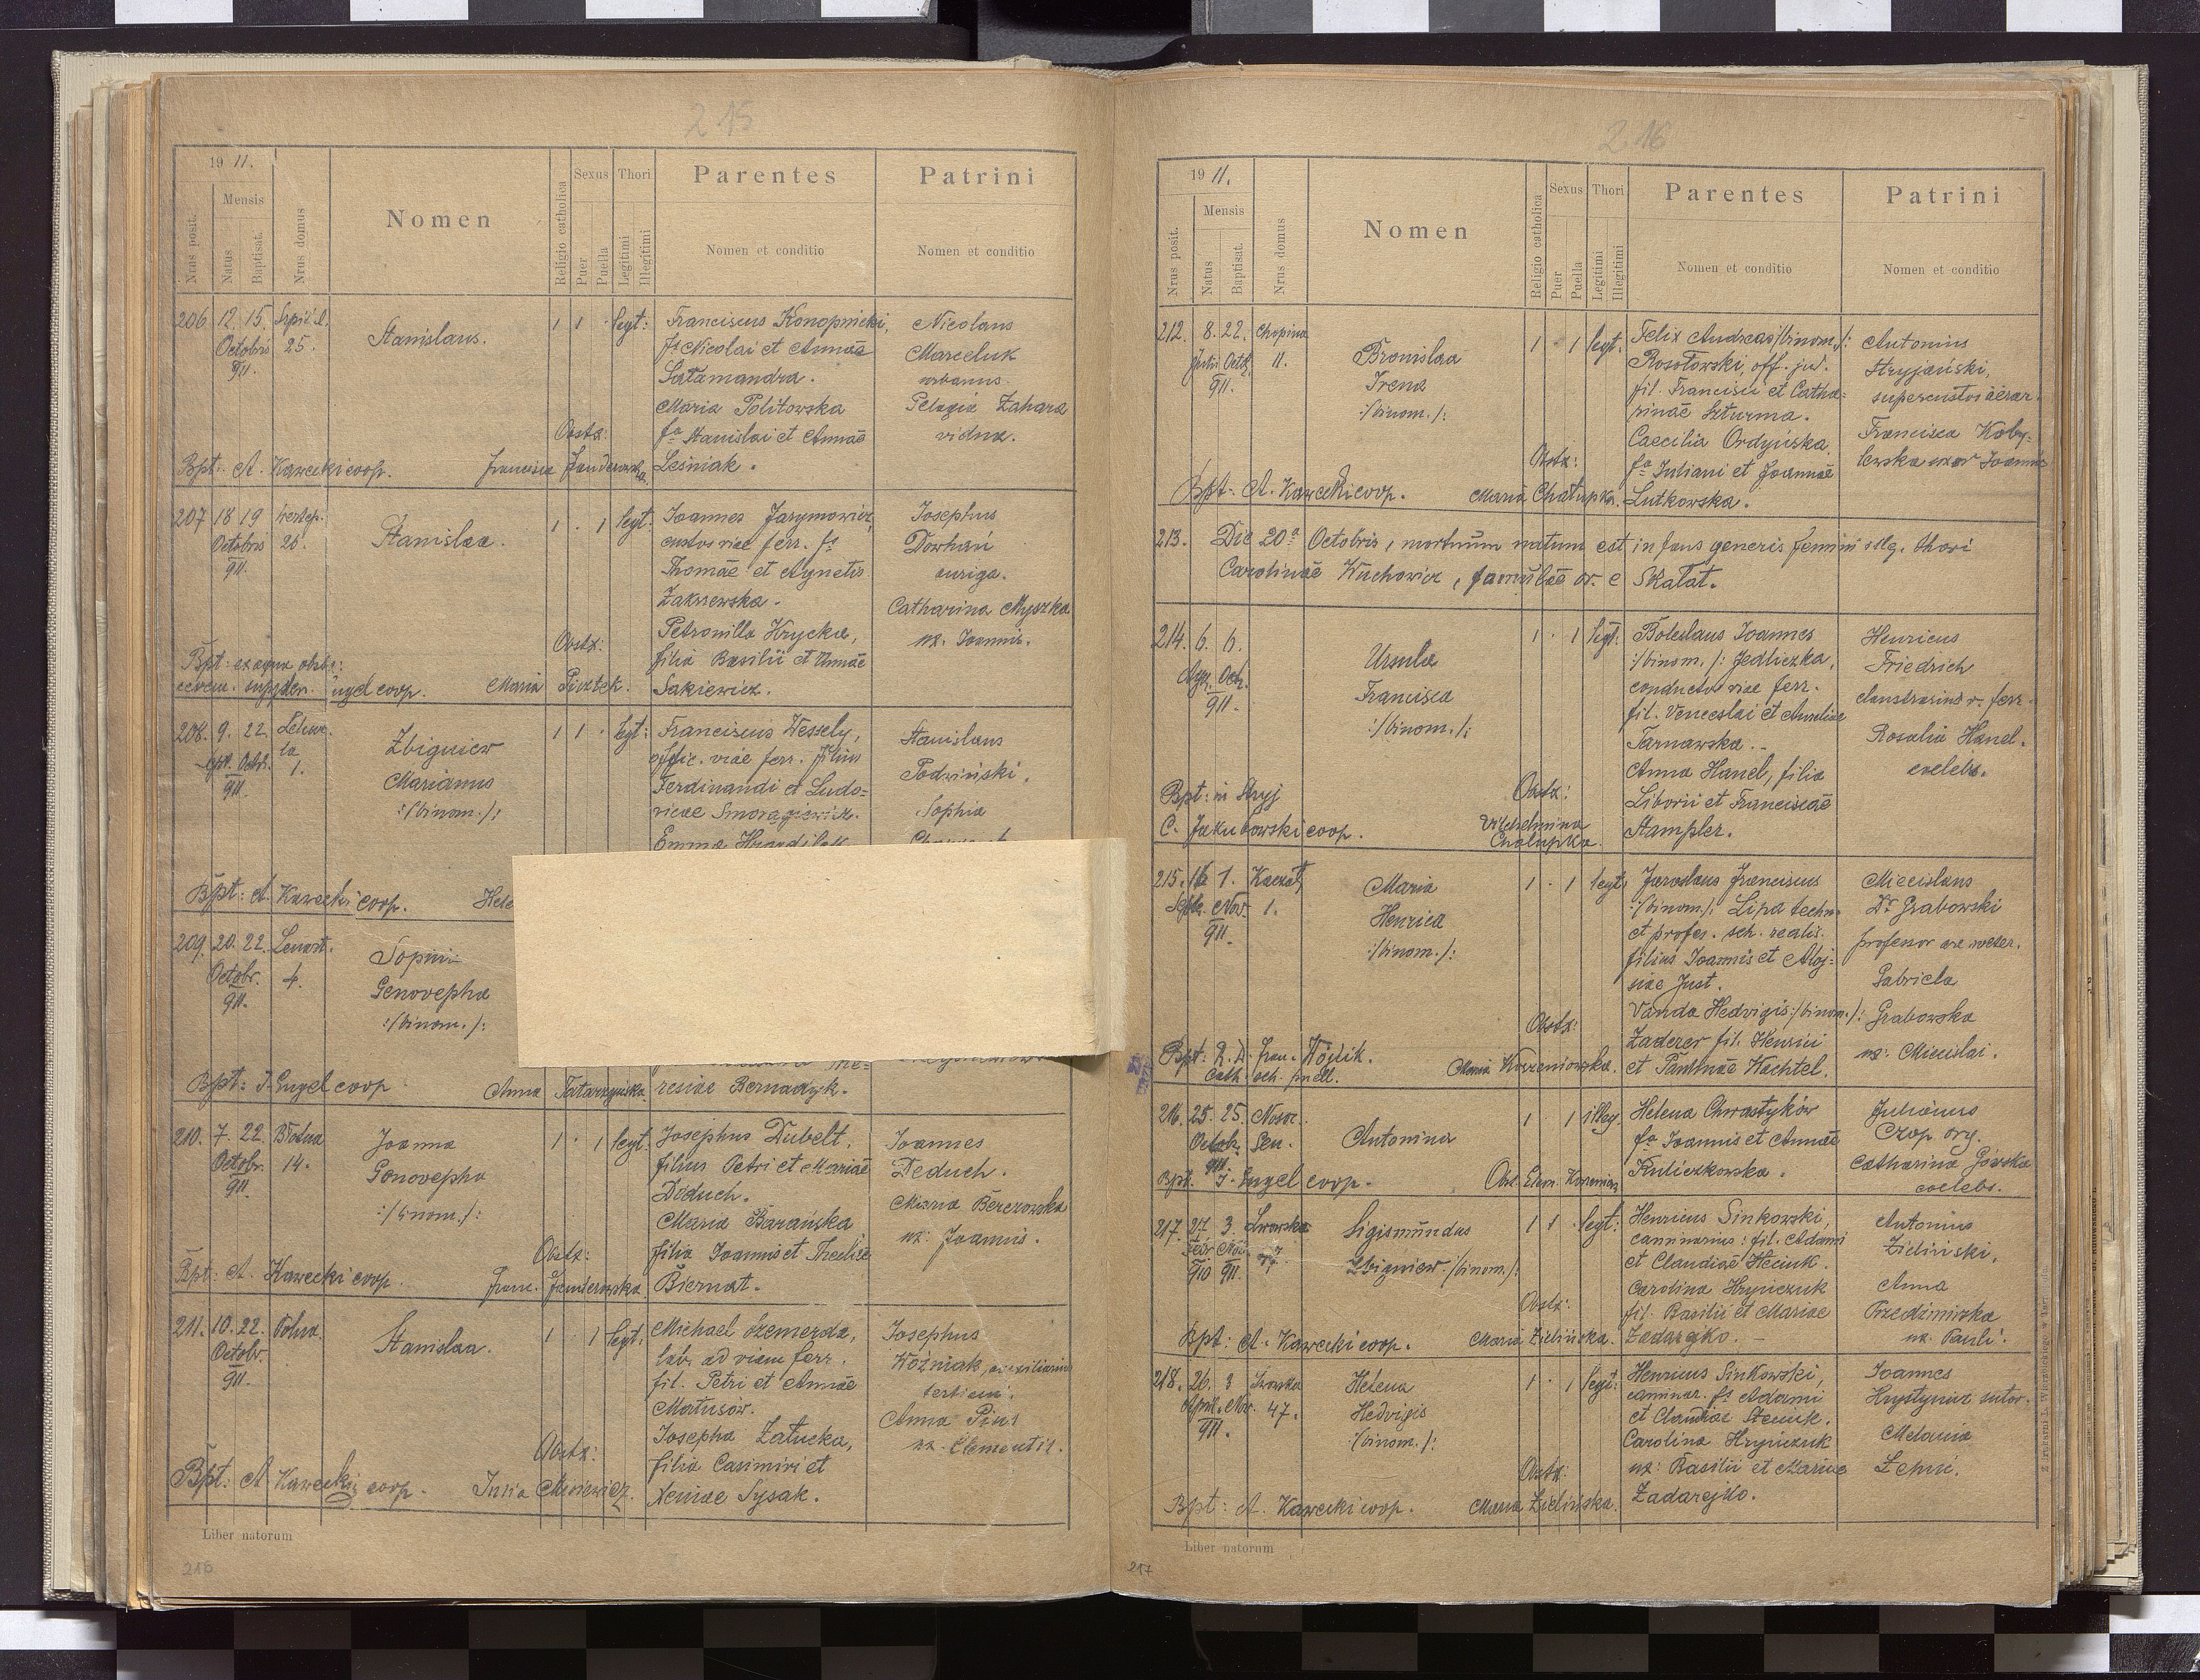 215
19 11.
Nrus posit.
Mensis
Natus
Baptisat.
Nrus domus
Nomen
Religio catholica
Sexus
Puer
Puella
Thori
Legitimi
Illegitimi
Parentes
Nomen et conditio
Patrini
Nomen et conditio
206. 12. 15.
Octobris 25.
911.
Stanislaus.
1 1 · legt:
Franciscus Konopnicki,
fs Nicolai et Annae
Salamandra.
Maria Politowska
fa Stanislai et Annae
Leśniak.
Nicolaus
Marceluk
urbanus.
Pelagia Zahara
vidua.
Obstx:
Bpt: A. Kawecki coop.
207 18 19
Octobris 26.
911.
Stanislaa.
1 · 1 legt.
Ioannes Jarymowicz,
custos viae ferr. fs
Thomae et Agnetis
Zakrzewska.
Petronilla Hrycka,
filia Basilii et Annae
Sakiewicz.
Josephus
Dowhań
auriga.
Catharina Myszka
ux. Ioannis.
Obstx:
Maria Pieztek.
Bpt: ex aqua obste:
cerem. supplev. Engel coop.
208. 9. 22.
Octr. 1.
911.
Zbigniew
Marianus
:/binom./:
1 1 · legt:
Franciscus Wessely,
offic. viae ferr. filius
Ferdinandi et Ludo=
vicae Smoragiewicz.
Stanislaus
Podwiński.
Sophia
Bpt: A. Kawecki coop.
209. 20. 22. Lenart.
Octobr. 4.
911.
Genovepha
:/binom./:
resiae Bernadzyk.
Bpt: J. Engel coop
Anna Tatarzyńska
210. 7. 22. Błotna
Octobr. 14.
911.
Joanna
Genovepha
:/binom./:
1 · 1 legt.
Josephus Dubelt,
filius Petri et Mariae
Deduch.
Maria Barańska
filia Ioannis et Theclae
Biernat.
Ioannes
Deduch.
Maria Berezowska
ux: Joannis.
Obstx:
Bpt: A. Kawecki coop.
Franc. Janderowska
211. 10. 22. Polna.
Octobr.
911.
Stanislaa.
1 · 1 legt.
Michael Szemerda,
lab. ad viam ferr.
fil. Petri et Annae
Matusów.
Josepha Załucka,
filia Casimiri et
Xeniae Sysak.
Josephus
Woźniak, auxiliarius
Anna Pius
ux. Clementis.
Obstx:
Bpt: A. Kawecki coop.
Liber natorum
216
216
19 11.
Nrus posit.
Mensis
Natus
Baptisat.
Nrus domus
Nomen
Religio catholica
Sexus
Puer
Puella
Thori
Legitimi
Illegitimi
Parentes
Nomen et conditio
Patrini
Nomen et conditio
212. 8. 22. Chopina
11.
911.
Bronislaa
Irena
:/binom./:
1 · 1 legt.
Felix Andreas /binom./:
Rosołowski, off. jud.
fil. Francisci et Catha=
rinae Szturma.
Caecilia Ordyńska
fa Juliani et Joannae
Lutkowska.
Antonius
Stryjański,
supercustos aerar.
Francisca Koby=
lewska uxor Joannis
Obstx:
Bpt: A. Kawecki coop.
Maria Chałupka.
213. Die 20a Octobris, mortuum natum est infans generis femini illg. thori
Carolinae Wuchowicz, famulae or. e Skałat.
214. 6. 6.
911.
Ursula
Francisca
:/binom./:
1 · 1 legt:
Boleslaus Ioannes
:/binom./: Jedliczka,
conductor viae ferr.
fil. Venceslai et Aureliae
Tarnawska.
Anna Hanel, filia
Liborii et Franciscae
Stampler.
Henricus
Friedrich
claustrarius v. ferr.
Rosalia Hanel.
coelebs.
Obstx:
Vilhelmina
Chalupka.
Bpt: in Stryj
C. Jakubowski coop.
215. 16 1.
Nov. 1.
911.
Maria
Henrica
:/binom./:
1 · 1 legt:
Jaroslaus Franciscus
:/binom./: Lipa techn.
et profes. sch. realis.
filius Joannis et Aloj=
siae Just.
Vanda Hedvigis:/binom./:
Zaderer fil. Henrici
et Paulinae Wachtel.
Miecislaus
Dr Grabowski
professor
Gabriela
Grabowska
ux: Miecislai.
Obstx:
Maria Korzeniowska.
Bpt: R. D. Fran. Wójcik.
Cath. sch. puell.
216. 25. 25.
Octob. Sen.
911.
Antonina
1 · 1 illeg.
Helena Chrastyków
fa Ioannis et Annae
Kuliczkowska.
Julianus
Czop org.
Catharina Górska
coelebs.
Bpt. J. Engel coop.
217. 27. 3. Lwowska
910 911.
Sigismundus
Zbigniew /binom./:
1 1 · legt:
Henricus Sinkowski,
caminarius: fil. Adami
et Claudiae Steciuk.
Carolina Hryńczuk
fil. Basilii et Mariae
Zadarejko.
Antonius
Zieliński,
Anna
Przedzimirka
ux. Pauli.
Obstx:
Bpt: A. Kawecki coop.
Maria Zielińska.
218. 26. 3 Lwowska
April. Nov. 47.
911.
Helena
Hedvigis
:/binom./:
1 · 1 legt:
Henricus Sinkowski,
caminar. fs Adami
et Claudiae Steciuk.
Carolina Hryńczuk
ux: Basilii et Mariae
Zadarejko.
Ioannes
Hrystyniuk sutor.
Melania
Obstx:
Bpt: A. Kawecki coop.
Maria Zielińska.
Liber natorum
217